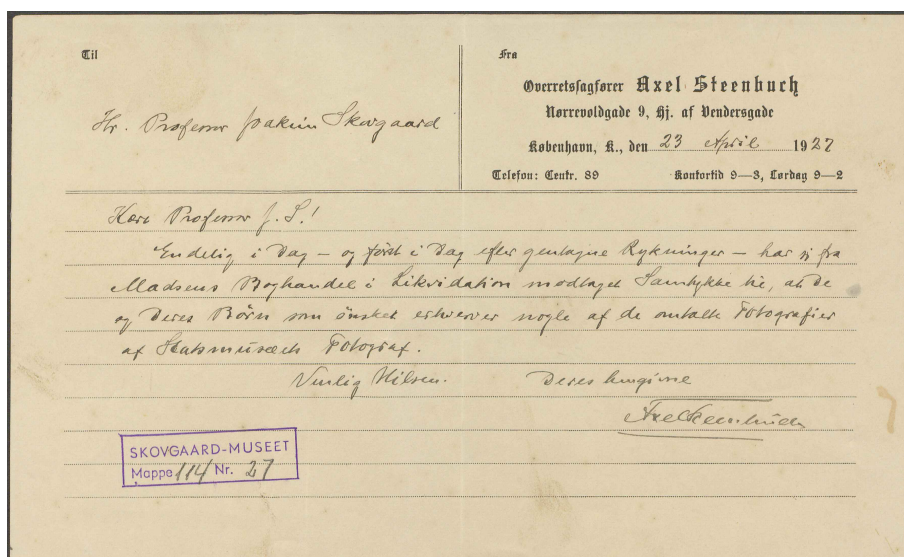 Til
Hr. Professor Joakim Skovgaard
Fra
Overretssagfører Axel Steenbuch
Nørrevoldgade 9, Hj. af Vendersgade
København, K., den 23 April 1927
Telefon: Centr. 89 Kontortid 9—3, Lørdag 9—2
Kære Professor J. S.!
Endelig i Dag — og først i Dag efter gentagne Rykninger — har vi fra
Madsens Boghandel i Likvidation modtaget Samtykke til, at De
og Deres Børn som ønsket erhverver nogle af de omtalte Fotografier
af Statsmusæets Fotograf.
Venlig Hilsen. Deres hengivne
Axel Steenbuch
SKOVGAARD-MUSEET
Mappe 114 Nr. 27